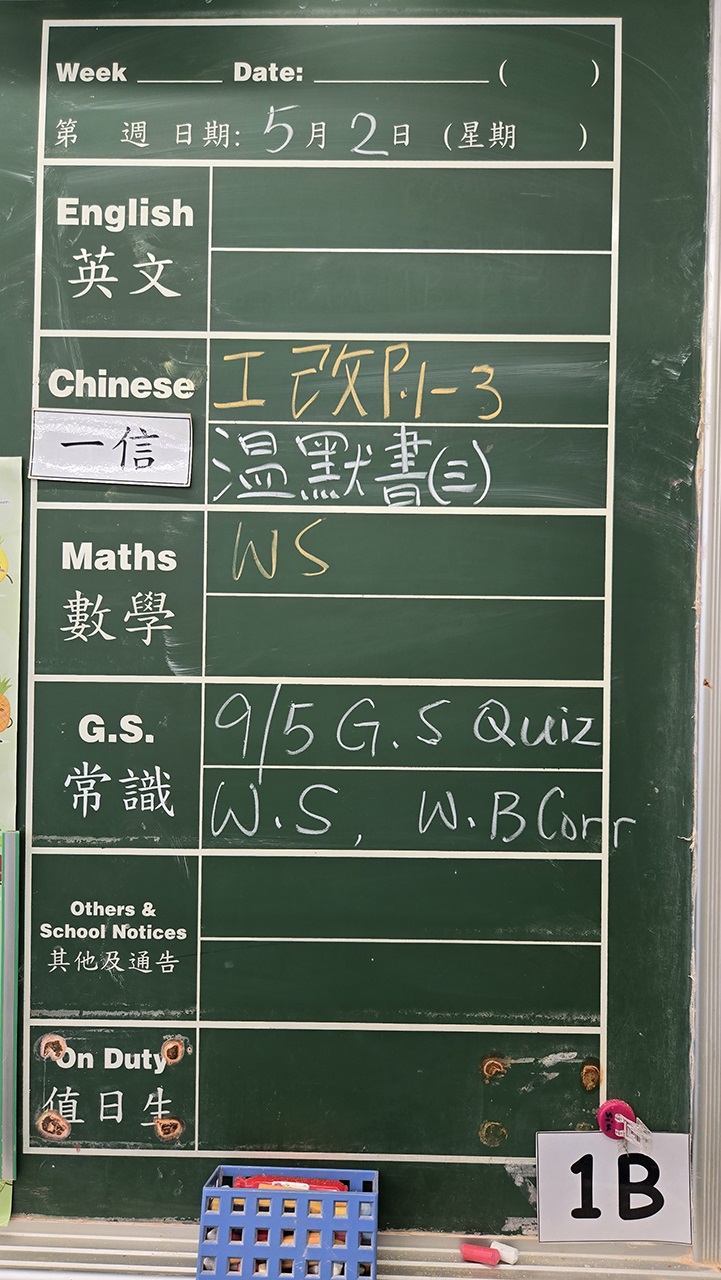 Week ______ Date: ____________ (    )
第 週 日期: 5月2日 (星期    )
English
英文
Chinese
工改P.1-3
一信
溫默書(三)
Maths
WS
數學
G.S.
9/5 G.S Quiz
常識
W.S, W.B Corr
Others &
School Notices
其他及通告
On Duty
值日生
1B